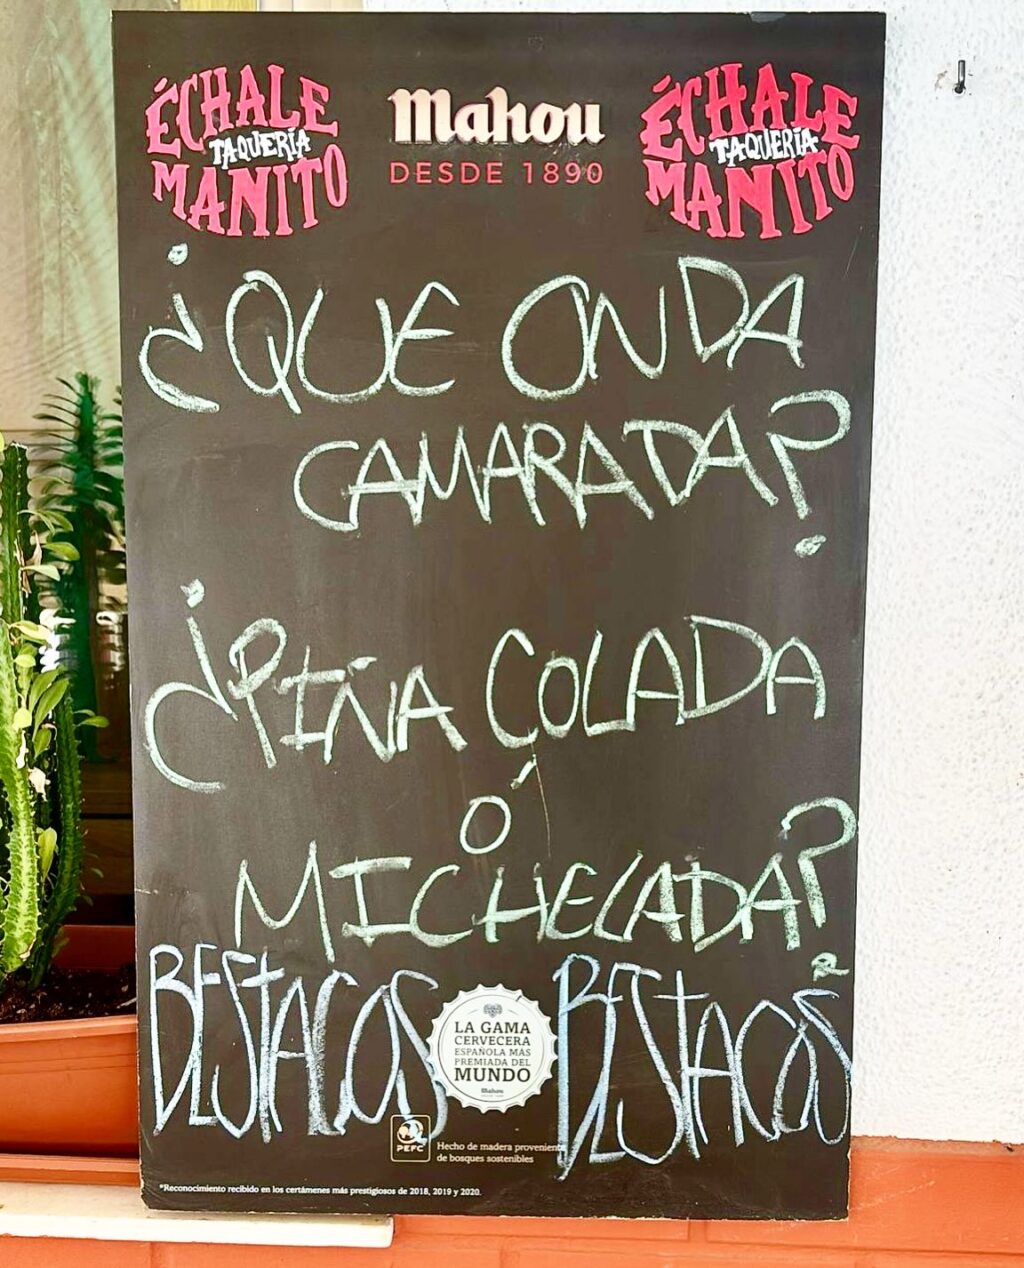 ÉCHALE
TAQUERÍA
MANITO
Mahou
DESDE 1890
ÉCHALE
TAQUERÍA
MANITO
¿QUE ONDA
CAMARADA?
¿PIÑA COLADA
O
MICHELADA?
BESTACOS
BESTACOS
R
LA GAMA
CERVECERA
ESPAÑOLA MÁS
PREMIADA DEL
MUNDO
Mahou
PEFC
Hecho de madera proveniente
de bosques sostenibles
*Reconocimiento recibido en los certámenes más prestigiosos de 2018, 2019 y 2020.